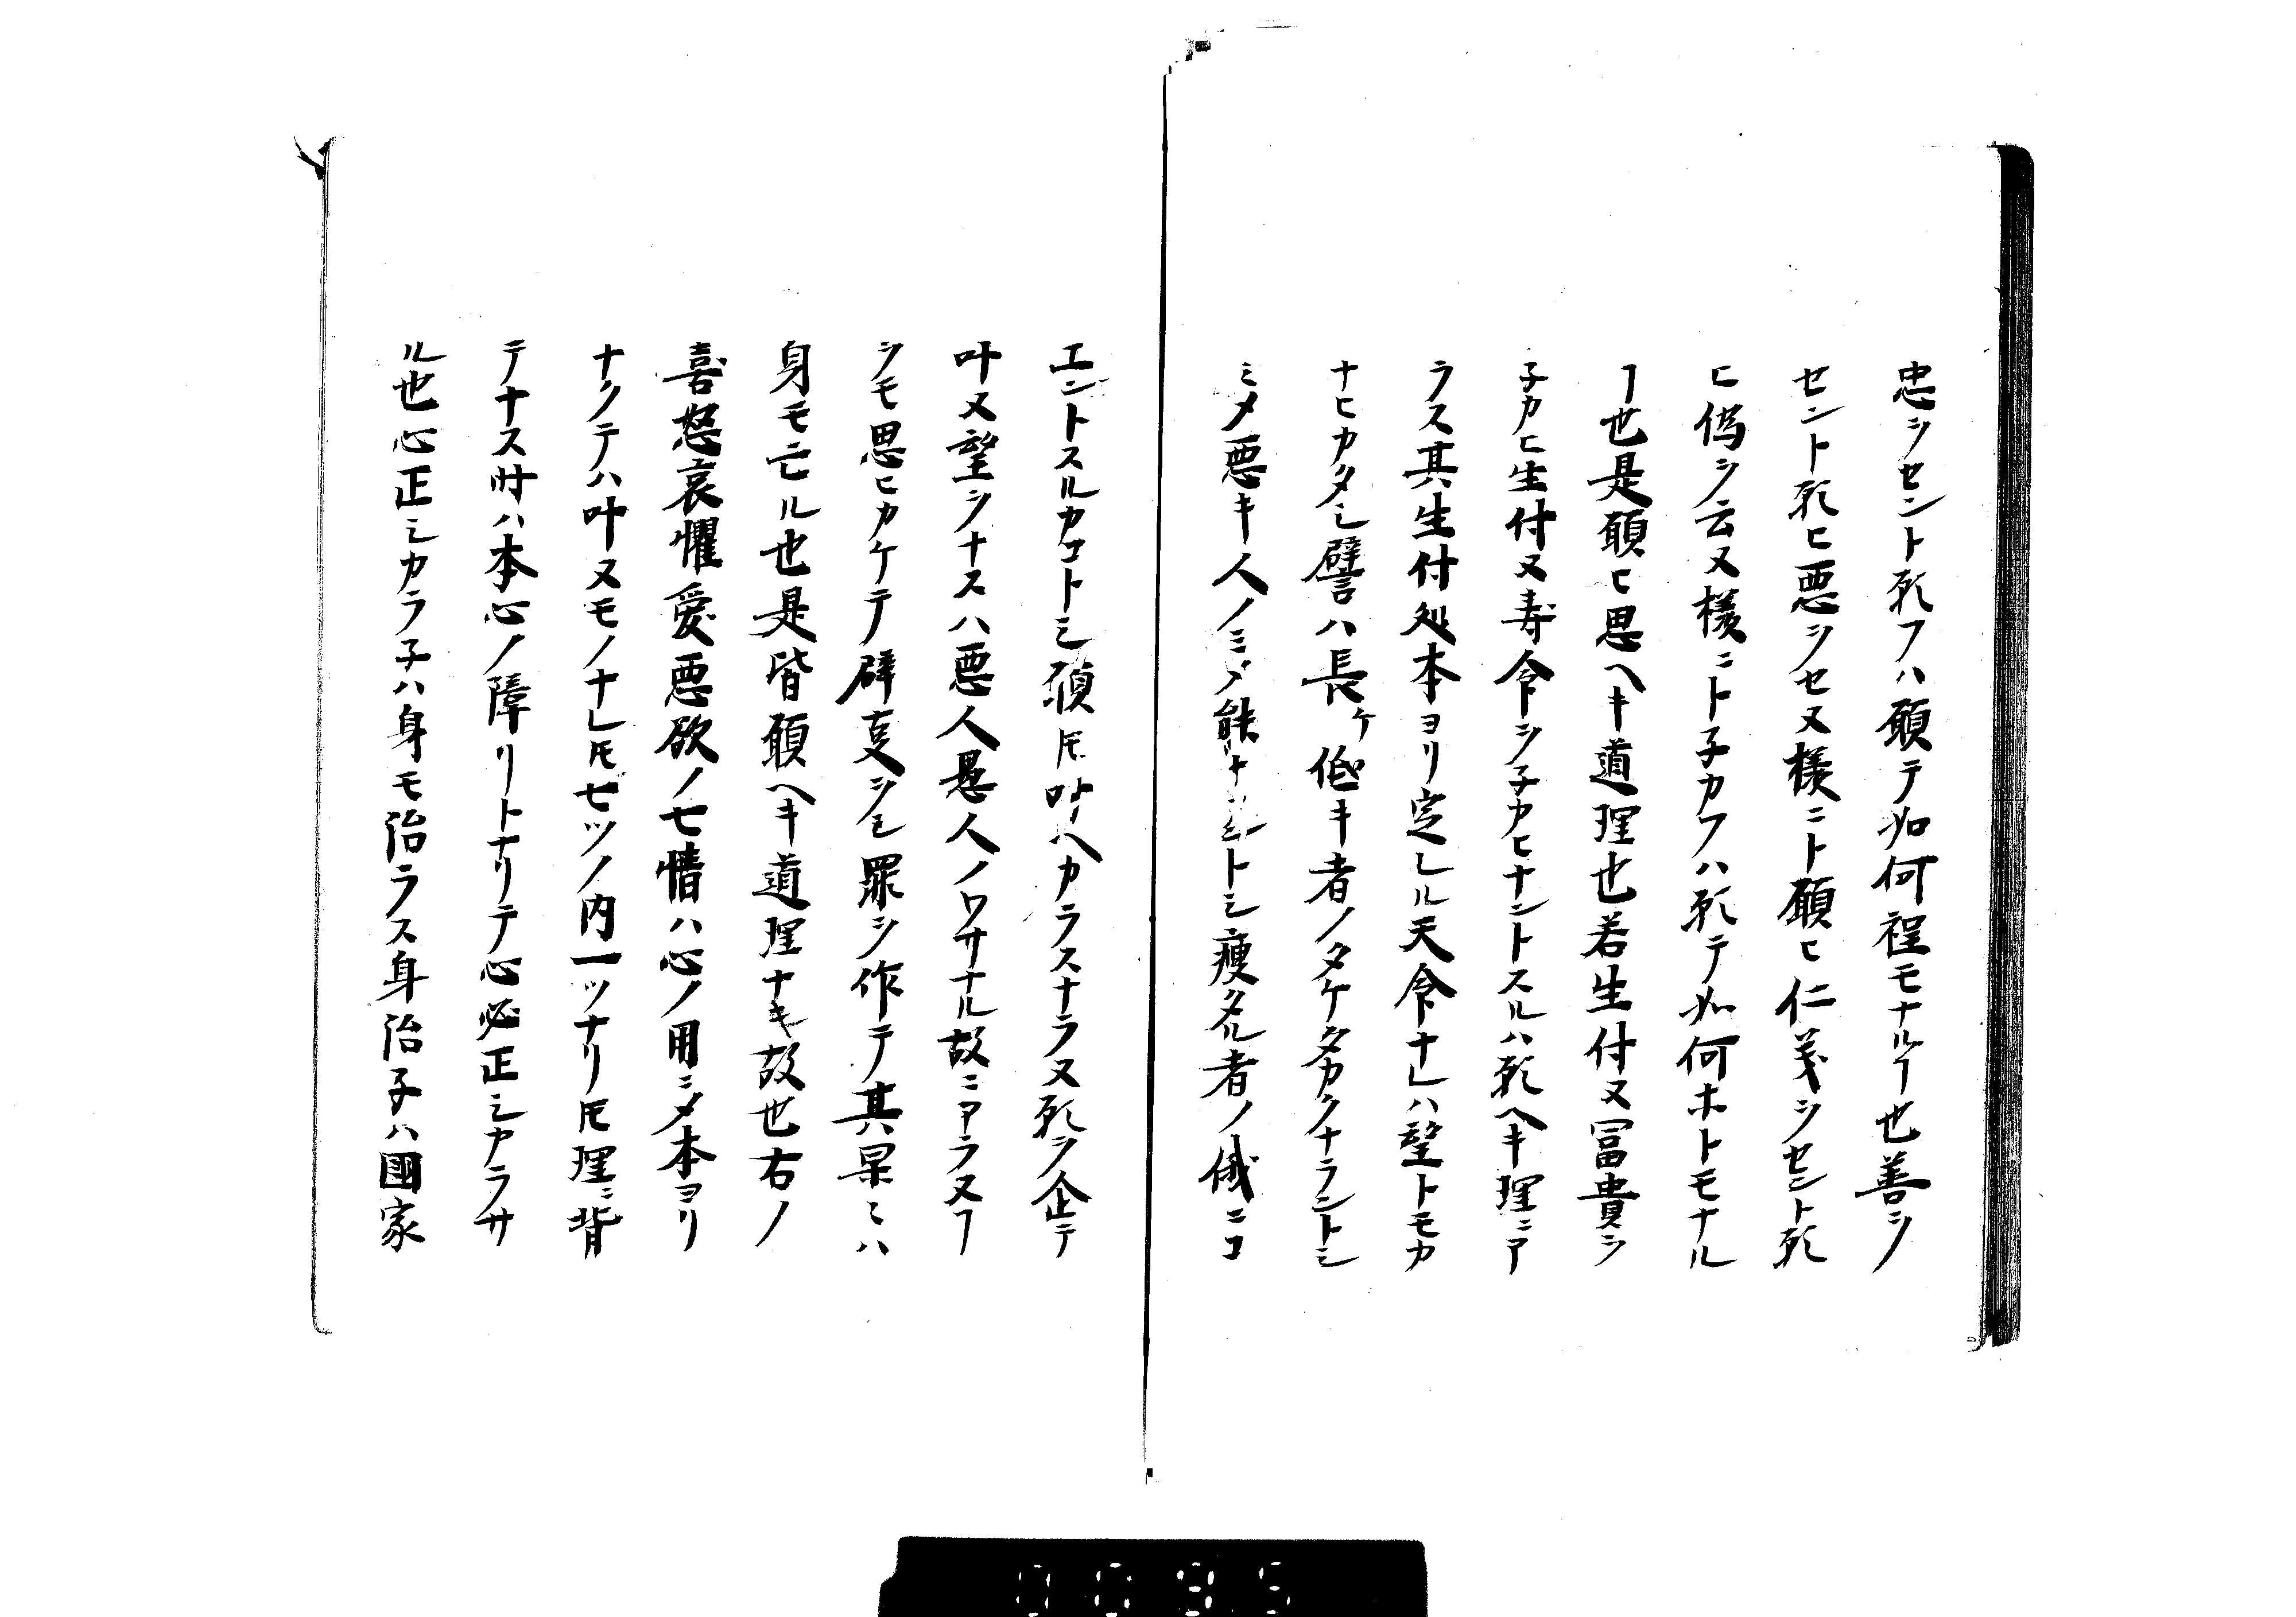 忠ヲセント願フハ願テ如何程モナルヿ也善ヲ
セント願ヒ悪ヲセヌ様ニト願ヒ仁義ヲセント願
ヒ偽ヲ云ヌ様ニト子カフハ願テ如何ホトモナル
ヿ也是願ヒ思ヘキ道理也若生付ヌ冨貴ヲ
子カヒ生付ヌ寿命ヲ子カヒナントスルハ願ヘキ理ニア
ラス其生付処本ヨリ定レル天命ナレハ望トモカ
ナヒカタシ譬ハ長ケ低キ者ノタケタカクナラントシ
ミメ悪キ人ノミメ能ナラントシ痩タル者ノ俄ニコ
エントスルカコトシ願𪜈叶ヘカラスナラヌ願ヲ企テ
叶ヌ望ヲナスハ悪人愚人ノワサナル故ニアラヌヿ
ヲモ思ヒカケテ辟叓ヲシ罪ヲ作テ其果ミハ
身モ亡ル也是皆願ヘキ道理ナキ故也右ノ
喜怒哀懼愛悪欲ノ七情ハ心ノ用ニメ本ヨリ
ナクテハ叶ヌモノナレ𪜈七ツノ内一ツナリ𪜈理ニ背
テナス時ハ本心ノ障リトナリテ心必正シカラサ
ル也心正シカラ子ハ身モ治ラス身治子ハ國家
0095